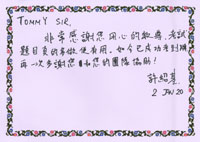 TOMMY SIR,
非常感謝您用心的教導,考試
題目真的多做便有用,如今已成功考到牌
再一次多謝您和您的團隊協助!
許紹基
2 JAN 20